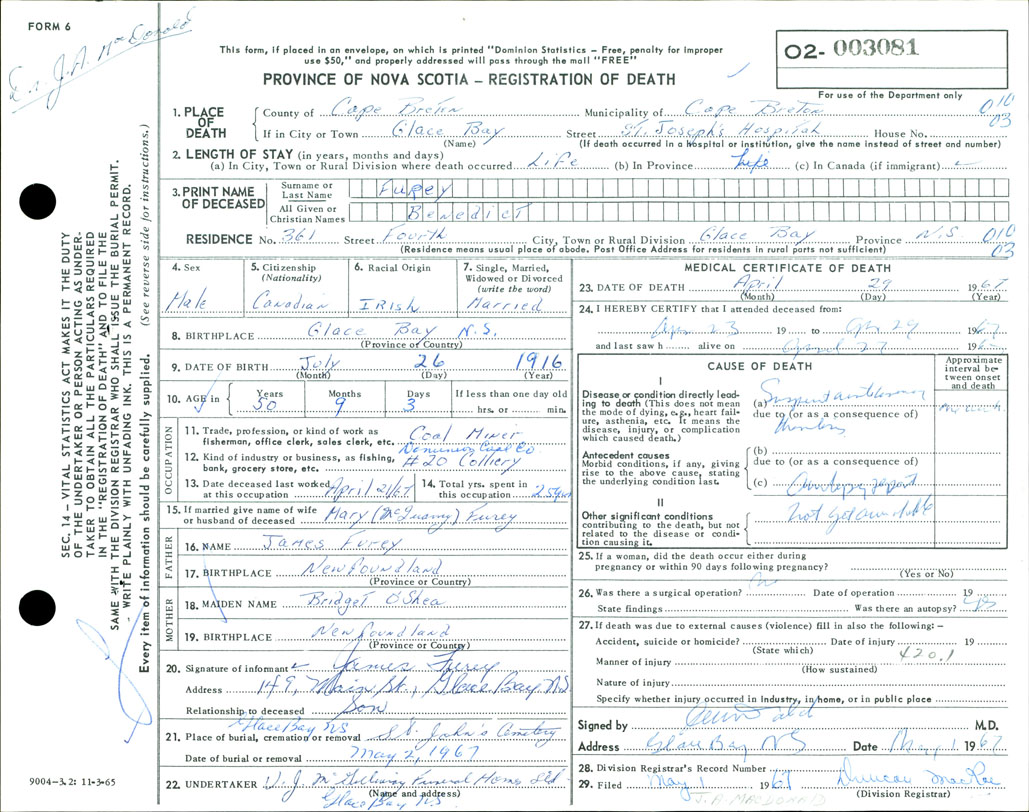 FORM 6
Dr. J.A. McDonald
This form, if placed in an envelope, on which is printed "Dominion Statistics – Free, penalty for improper
use $50," and properly addressed will pass through the mail "FREE"
PROVINCE OF NOVA SCOTIA – REGISTRATION OF DEATH
02- 003081
For use of the Department only
1. PLACE OF DEATH
County of Cape Breton Municipality of Cape Breton 010
If in City or Town Glace Bay Street St. Joseph's Hospital House No. 03
(Name) (If death occurred in a hospital or institution, give the name instead of street and number)
2. LENGTH OF STAY (in years, months and days)
(a) In City, Town or Rural Division where death occurred Life (b) In Province Life (c) In Canada (if immigrant)
3. PRINT NAME OF DECEASED
Surname or Last Name Furey
All Given or Christian Names Benedict
RESIDENCE No. 361 Street Fourth City, Town or Rural Division Glace Bay Province N.S. 010
(Residence means usual place of abode. Post Office Address for residents in rural parts not sufficient) 03
4. Sex
Male
5. Citizenship (Nationality)
Canadian
6. Racial Origin
Irish
7. Single, Married, Widowed or Divorced (write the word)
Married
8. BIRTHPLACE Glace Bay N.S.
(Province or Country)
9. DATE OF BIRTH July 26 1916
(Month) (Day) (Year)
10. AGE Years Months Days If less than one day old
50 9 3 hrs. or min.
OCCUPATION
11. Trade, profession, or kind of work as Coal Miner
fisherman, office clerk, sales clerk, etc.
12. Kind of industry or business, as fishing, Dominion Coal Co
bank, grocery store, etc. #20 Colliery
13. Date deceased last worked at this occupation April 21/67
14. Total yrs. spent in this occupation 25 yrs
15. If married give name of wife or husband of deceased Mary Furey
FATHER
16. NAME James Furey
17. BIRTHPLACE Newfoundland
(Province or Country)
MOTHER
18. MAIDEN NAME Bridget O'Shea
19. BIRTHPLACE Newfoundland
(Province or Country)
20. Signature of informant James Furey
Address 149, Main St., Glace Bay NS
Relationship to deceased Son
Glace Bay NS
21. Place of burial, cremation or removal St. John's Cemetery
Date of burial or removal May 2, 1967
22. UNDERTAKER V. J. McGillivray Funeral Home Ltd
(Name and address) Glace Bay NS
MEDICAL CERTIFICATE OF DEATH
23. DATE OF DEATH April 29 1967
(Month) (Day) (Year)
24. I HEREBY CERTIFY that I attended deceased from:
Apr 23 19 to Apr 29 1967
and last saw h alive on April 27 196
CAUSE OF DEATH
Approximate interval between onset and death
I
Disease or condition directly leading to death (This does not mean the mode of dying, e.g., heart failure, asthenia, etc. It means the disease, injury, or complication which caused death.)
(a)
due to (or as a consequence of)
Antecedent causes
Morbid conditions, if any, giving rise to the above cause, stating the underlying condition last.
(b)
due to (or as a consequence of)
(c) Autopsy report
II
not yet available
Other significant conditions
contributing to the death, but not related to the disease or condition causing it.
25. If a woman, did the death occur either during
pregnancy or within 90 days following pregnancy?
(Yes or No)
26. Was there a surgical operation? no Date of operation 19
State findings Was there an autopsy? yes
27. If death was due to external causes (violence) fill in also the following: –
Accident, suicide or homicide? Date of injury 19
(State which) 420.1
Manner of injury
(How sustained)
Nature of injury
Specify whether injury occurred in Industry, in home, or in public place
Signed by M.D.
Address Glace Bay NS Date May 1 1967
28. Division Registrar's Record Number
29. Filed May 1 1967 Duncan MacRae
(Division Registrar)
J.A. MACDONALD
SEC. 14 – VITAL STATISTICS ACT MAKES IT THE DUTY
OF THE UNDERTAKER OR PERSON ACTING AS UNDER-
TAKER TO OBTAIN ALL THE PARTICULARS REQUIRED
IN THE "REGISTRATION OF DEATH" AND TO FILE THE
SAME WITH THE DIVISION REGISTRAR WHO SHALL ISSUE THE BURIAL PERMIT.
WRITE PLAINLY WITH UNFADING INK. THIS IS A PERMANENT RECORD.
Every item of information should be carefully supplied. (See reverse side for instructions.)
9004-3.2: 11-3-65